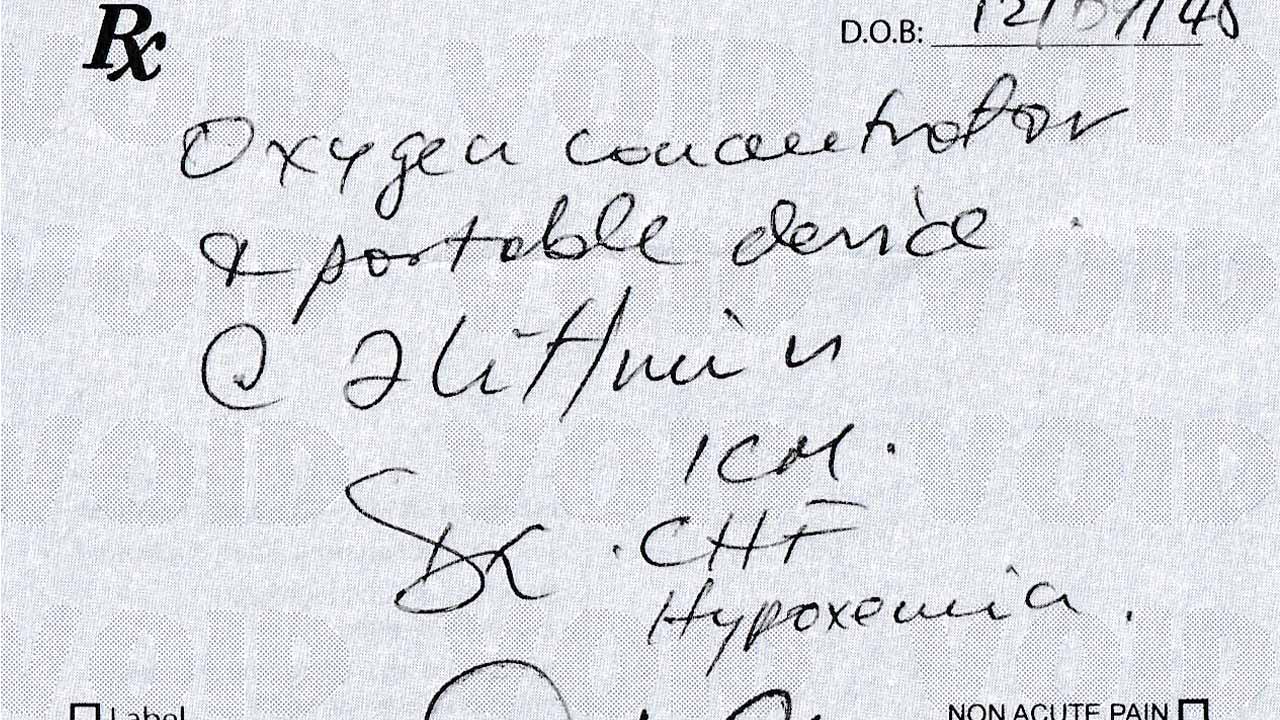 Rx
D.O.B:
Oxygen concentrator
& portable device
@ 2 lit/min
ICM.
Dx . CHF
Hypoxemia.
Label
NON ACUTE PAIN